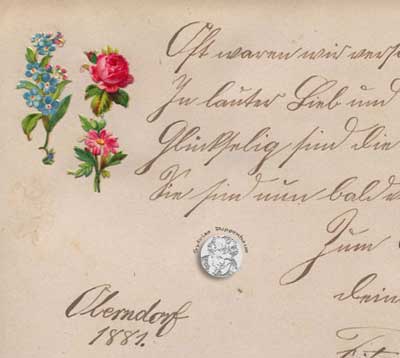 Oft waren wir vers
In lauter Lieb und
Glückselig sind die
Sie sind nun bald v
Zum
dein
Oberndorf
1881.